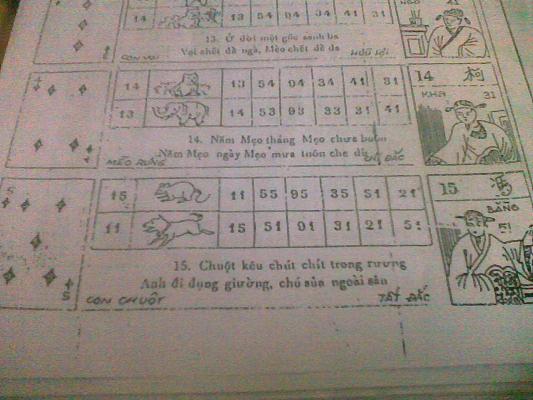 14 13 54 94 34 41 31
13. Ở đời một gốc sanh ba
Voi chết để ngà, Mèo chết để da
CON VOI HỮU LỢI
14 13 54 94 34 41 31
13 14 53 93 33 31 41
14. Năm Mẹo tháng Mẹo chưa buồn
Năm Mẹo ngày Mẹo mưa tuôn che
MÈO RỪNG ĐẮC
14 柯
KHA 31
4
15 11 55 95 35 51 21
11 15 51 91 31 21 51
15. Chuột kêu chút chít trong rương
Anh đi dụng giường, chó sủa ngoài sân
CON CHUỘT TẤT ĐẮC
15
BẰNG
51
5
5